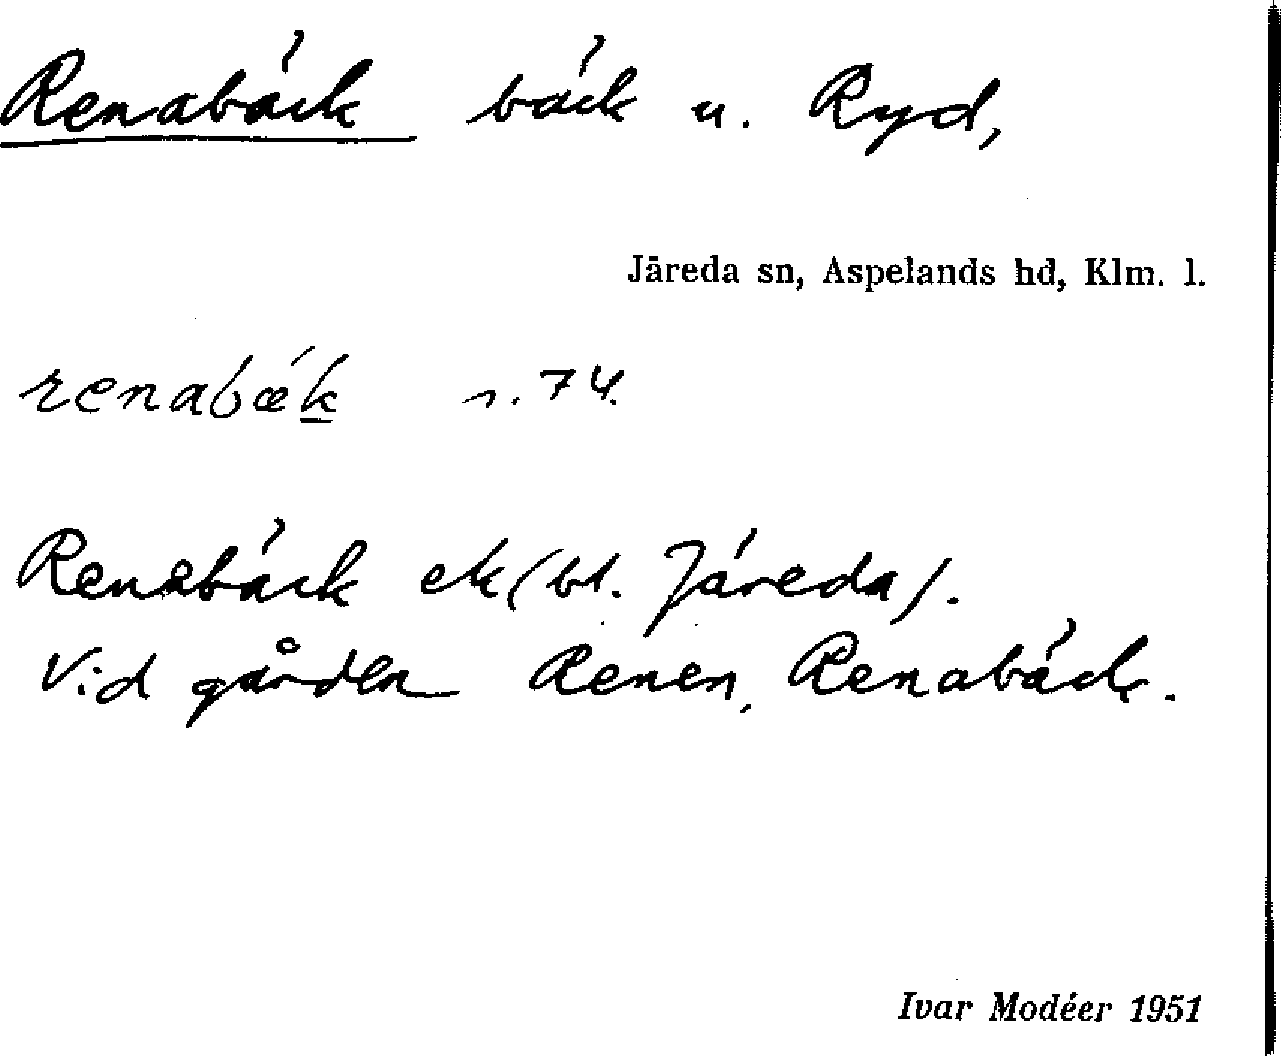 Renabäck bäck u. Ryd,
Järeda sn, Aspelands hd, Klm. l.
renabæk 74.
Renabäck ek (bl. Järeda).
Vid gården Renen, Renabäck.
Ivar Modéer 1951